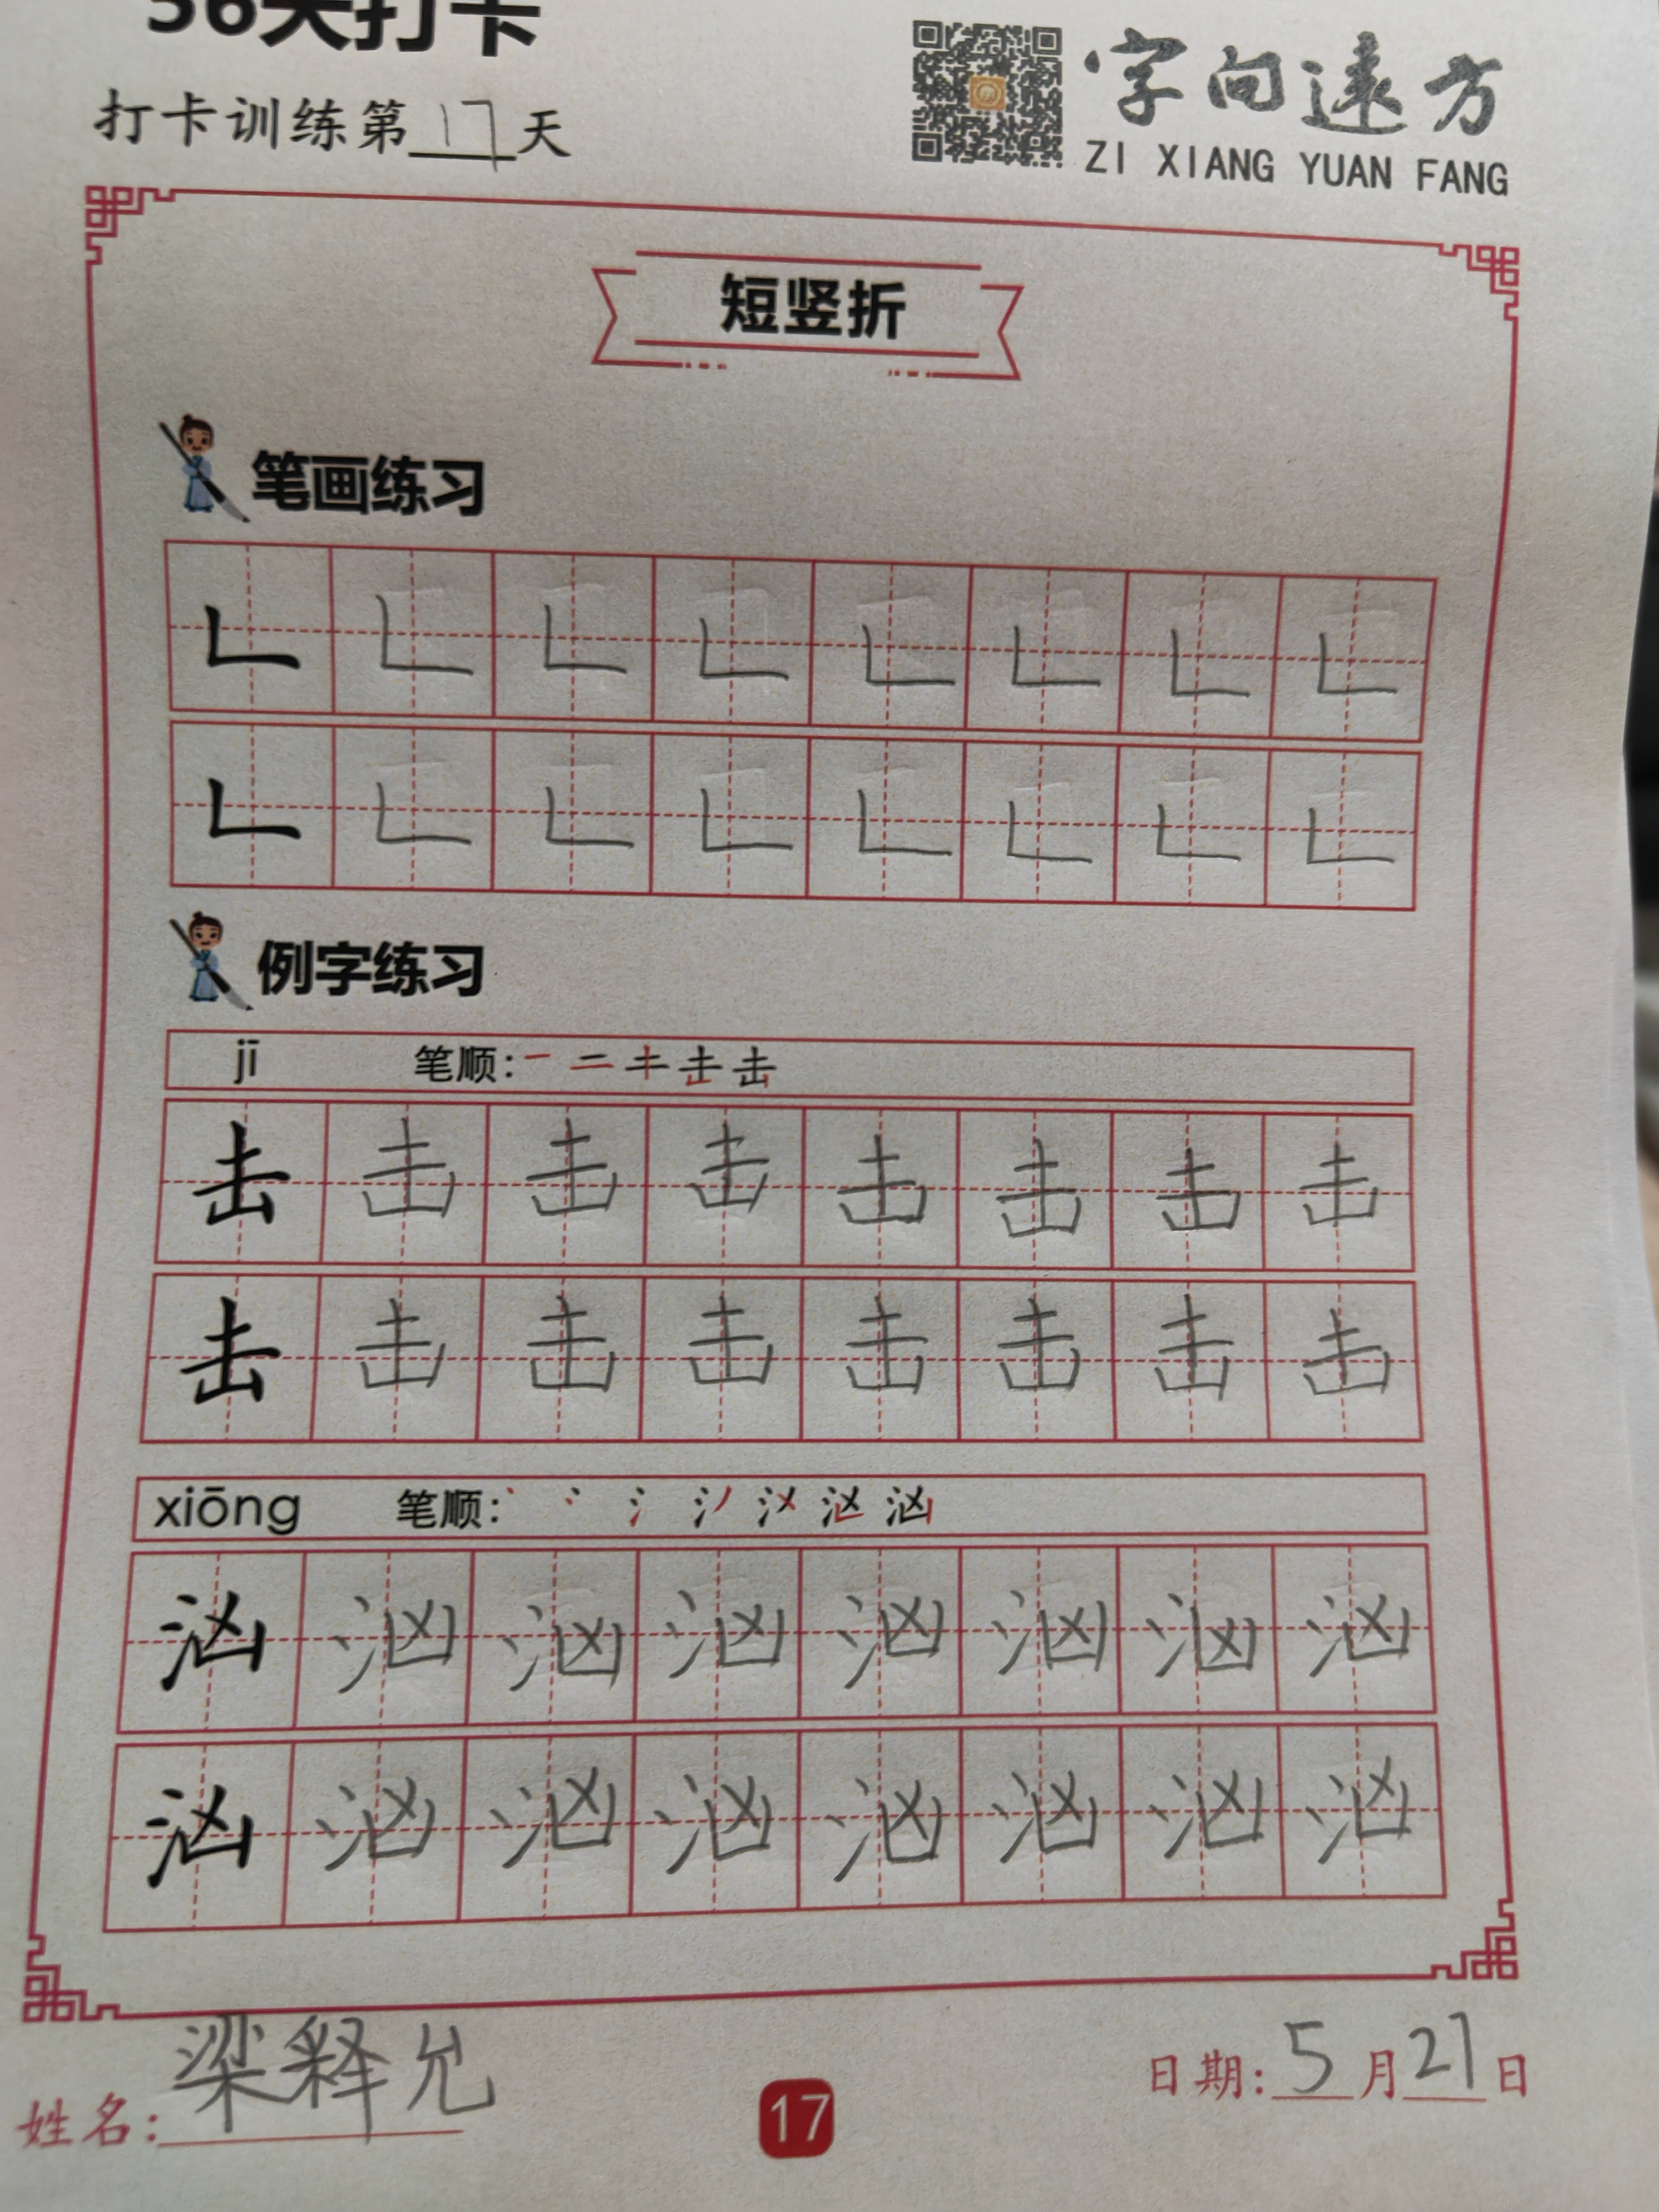 36天打卡
打卡训练第17天
字向遠方
ZI XIANG YUAN FANG
短竖折
笔画练习
𠃊 𠃊 𠃊 𠃊 𠃊 𠃊 𠃊 𠃊
𠃊 𠃊 𠃊 𠃊 𠃊 𠃊 𠃊 𠃊
例字练习
jī 笔顺:
击 击 击 击 击 击 击 击
击 击 击 击 击 击 击 击
xiōng 笔顺:
汹 汹 汹 汹 汹 汹 汹 汹
汹 汹 汹 汹 汹 汹 汹 汹
姓名:梁释允
17
日期:5月21日